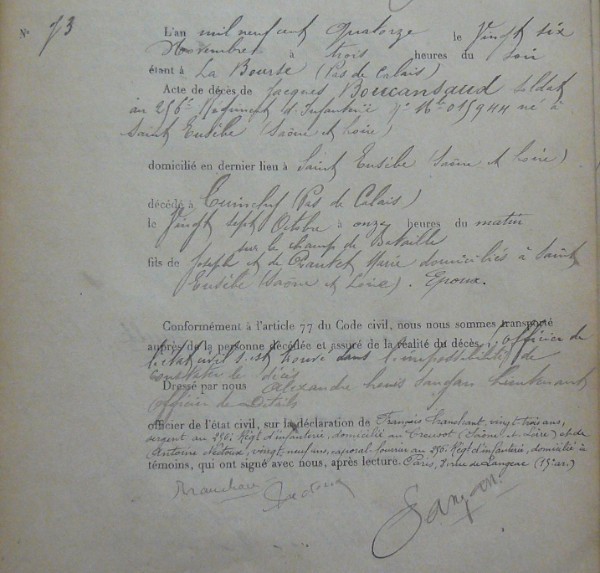 N° 73
L'an mil neuf cent quatorze le Vingt six
Novembre à trois heures du soir
étant à La Bourse (Pas de Calais)
Acte de décès de Jacques Boucansaud soldat
au 256e Régiment d'Infanterie né à
Saint Eusèbe (Saône et Loire)
domicilié en dernier lieu à Saint Eusèbe (Saône et Loire)
décédé à Cuinchy (Pas de Calais)
le Vingt sept Octobre à onze heures du matin
sur le champ de Bataille
fils de Joseph et de Marie domiciliés à Saint
Eusèbe (Saône et Loire). Epoux.
Conformément à l'article 77 du Code civil, nous nous sommes transporté
auprès de la personne décédée et assuré de la réalité du décès, l'officier de
l'état civil s'est trouvé dans l'impossibilité de
constater le décès
Dressé par nous Alexandre lieutenant
officier de Détails
officier de l'état civil, sur la déclaration de François vingt trois ans,
sergent au 256e Régt d'infanterie, domicilié au Creusot (Saône et Loire) et de
Antoine vingt neuf ans, caporal fourrier au 256e Régt d'infanterie, domicilié à
témoins, qui ont signé avec nous, après lecture. Paris, (15e arr.)